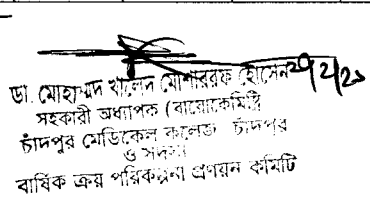 ২০/2/২১
ডা. মোহাম্মদ খালেদ মোশাররফ হোসেন
সহকারী অধ্যাপক (বায়োকেমিষ্ট্রি)
চাঁদপুর মেডিকেল কলেজ চাঁদপুর
ও সদস্য
বার্ষিক ক্রয় পরিকল্পনা প্রণয়ন কমিটি